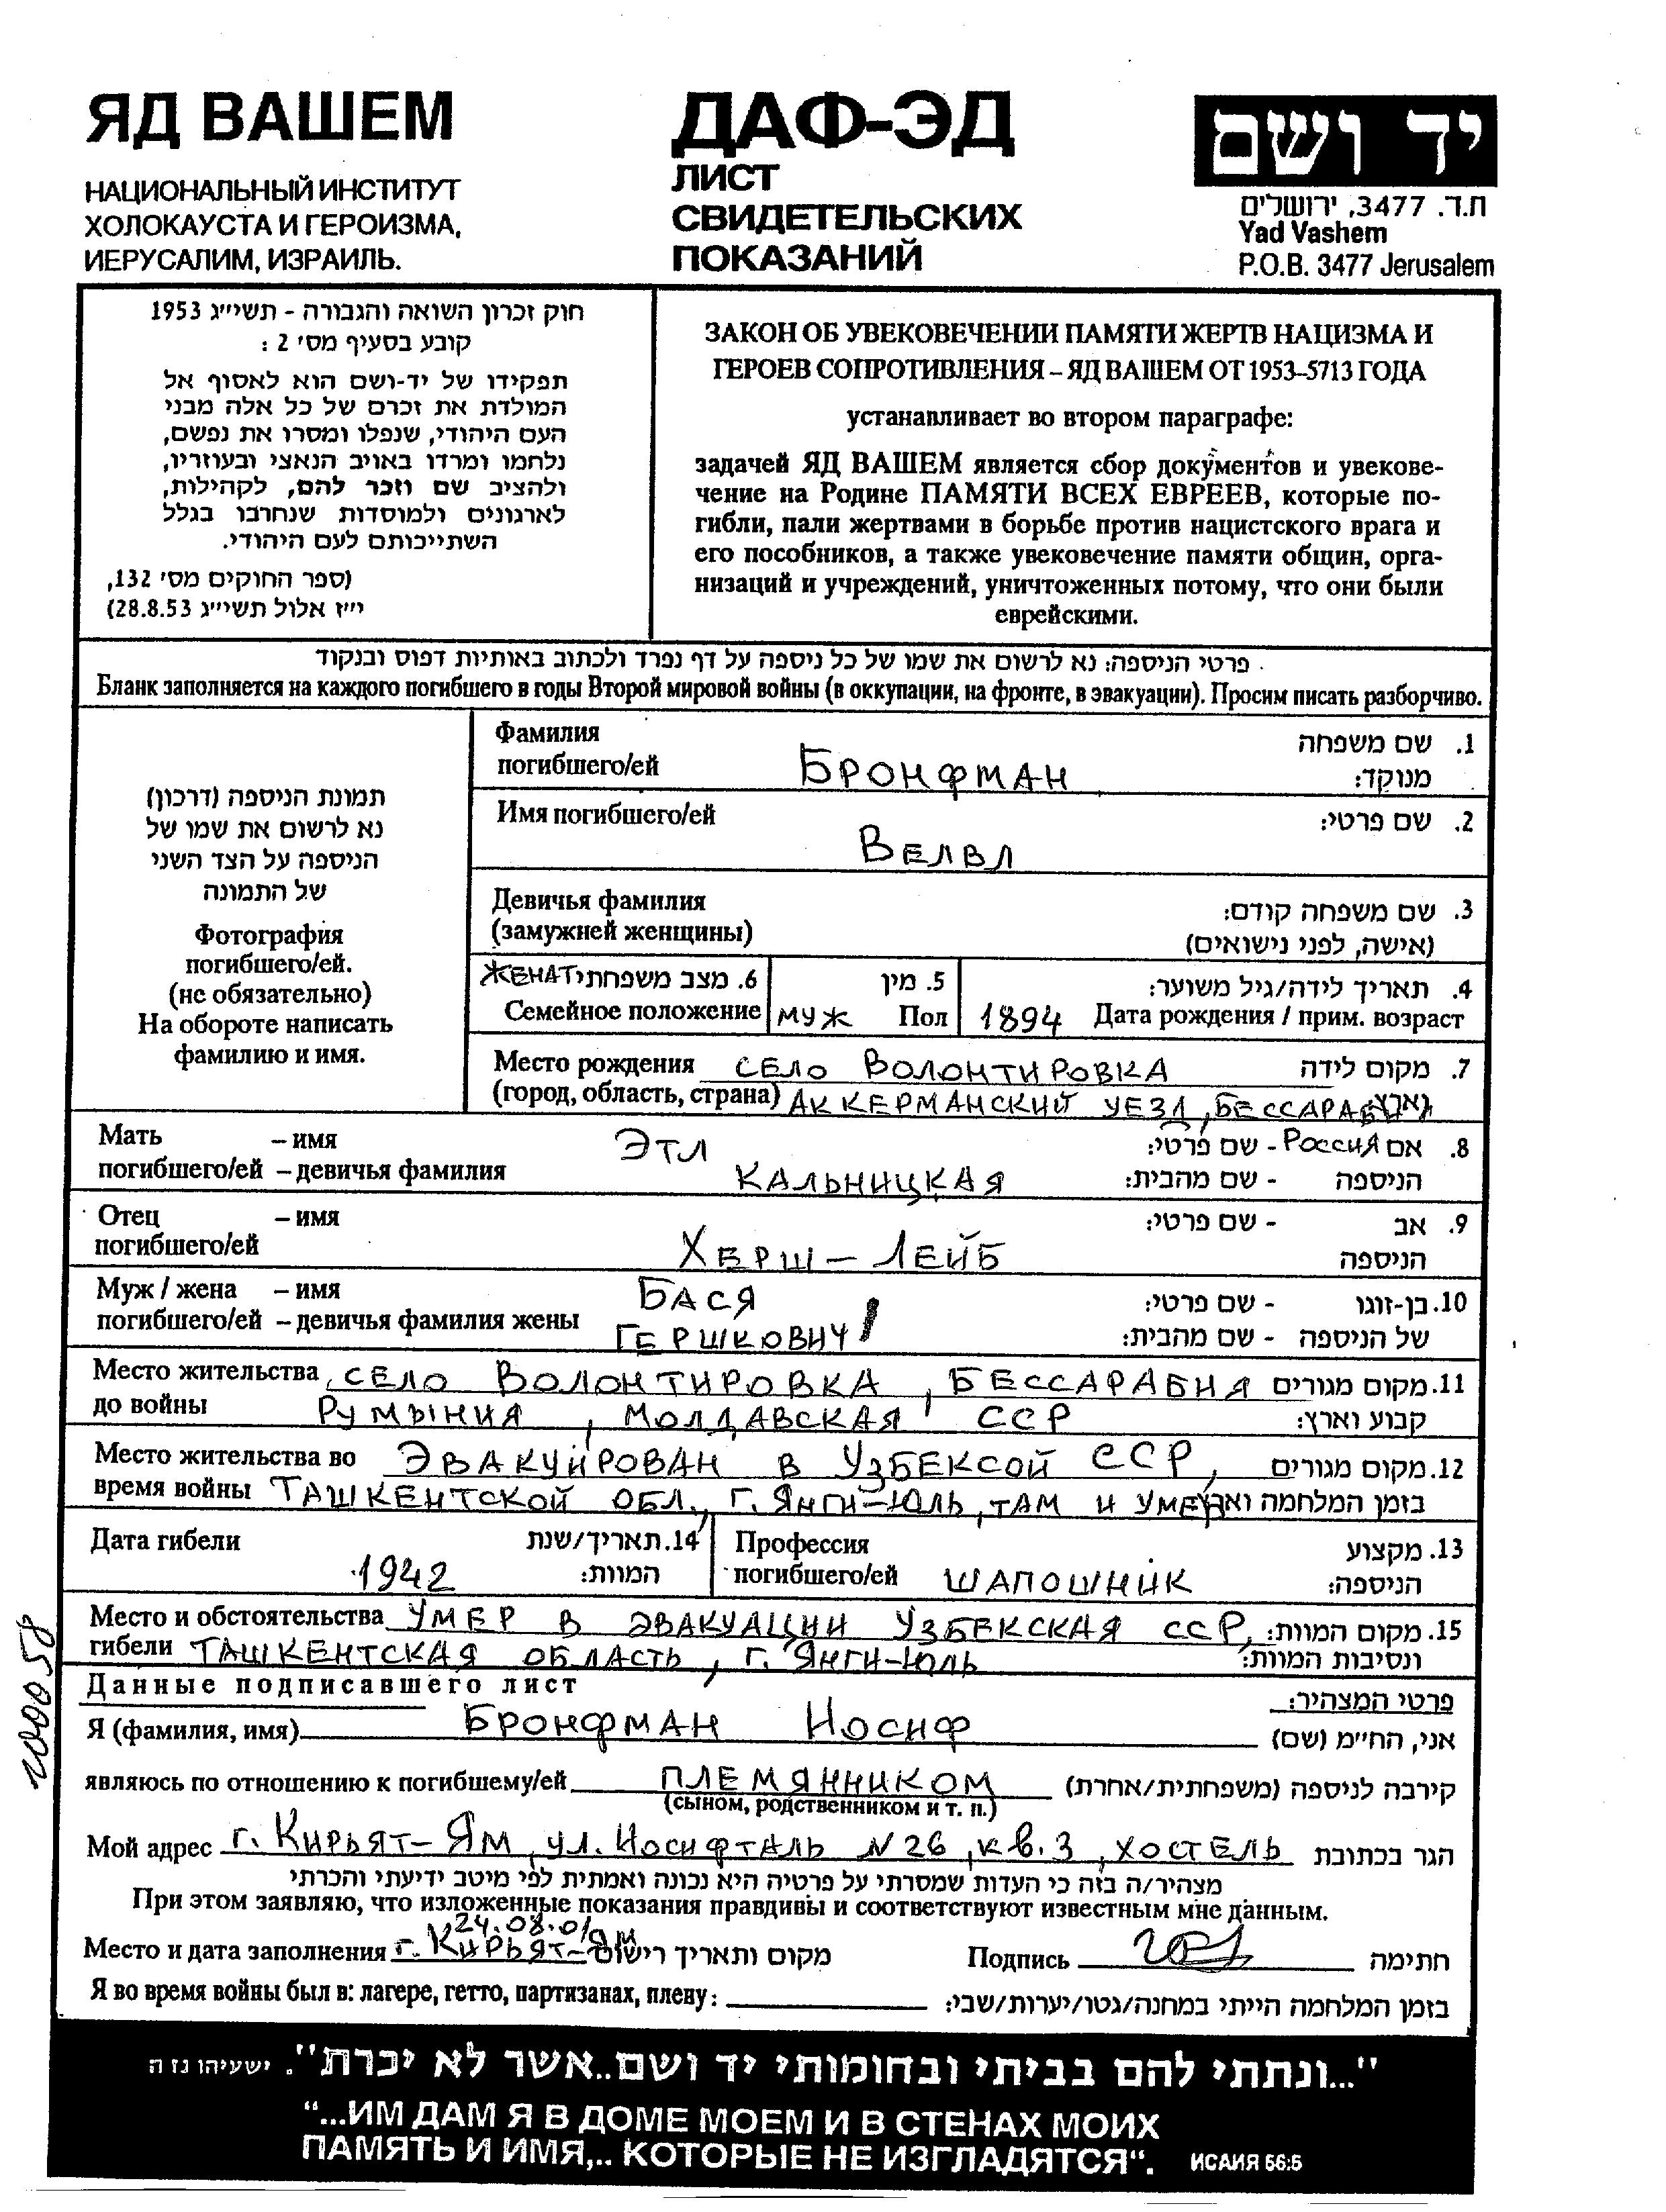 ЯД ВАШЕМ
НАЦИОНАЛЬНЫЙ ИНСТИТУТ
ХОЛОКАУСТА И ГЕРОИЗМА,
ИЕРУСАЛИМ, ИЗРАИЛЬ.
ДАФ-ЭД
ЛИСТ
СВИДЕТЕЛЬСКИХ
ПОКАЗАНИЙ
יד ושם
ת.ד. 3477, ירושלים
Yad Vashem
P.O.B. 3477 Jerusalem
חוק זכרון השואה והגבורה - תשי״ג 1953
קובע בסעיף מס׳ 2 :
תפקידו של יד-ושם הוא לאסוף אל
המולדת את זכרם של כל אלה מבני
העם היהודי, שנפלו ומסרו את נפשם,
נלחמו ומרדו באויב הנאצי ובעוזריו,
ולהציב שם וזכר להם, לקהילות,
לארגונים ולמוסדות שנחרבו בגלל
השתייכותם לעם היהודי.
(ספר החוקים מס׳ 132,
י״ז אלול תשי״ג 28.8.53)
ЗАКОН ОБ УВЕКОВЕЧЕНИИ ПАМЯТИ ЖЕРТВ НАЦИЗМА И
ГЕРОЕВ СОПРОТИВЛЕНИЯ – ЯД ВАШЕМ ОТ 1953–5713 ГОДА
устанавливает во втором параграфе:
задачей ЯД ВАШЕМ является сбор документов и увекове-
чение на Родине ПАМЯТИ ВСЕХ ЕВРЕЕВ, которые по-
гибли, пали жертвами в борьбе против нацистского врага и
его пособников, а также увековечение памяти общин, орга-
низаций и учреждений, уничтоженных потому, что они были
еврейскими.
פרטי הניספה: נא לרשום את שמו של כל ניספה על דף נפרד ולכתוב באותיות דפוס ובנקוד
Бланк заполняется на каждого погибшего в годы Второй мировой войны (в оккупации, на фронте, в эвакуации). Просим писать разборчиво.
תמונת הניספה (דרכון)
נא לרשום את שמו של
הניספה על הצד השני
של התמונה
Фотография
погибшего/ей.
(не обязательно)
На обороте написать
фамилию и имя.
Фамилия 1. שם משפחה
погибшего/ей БРОНФМАН מנוקד:
Имя погибшего/ей 2. שם פרטי:
ВЕЛВЛ
Девичья фамилия 3. שם משפחה קודם:
(замужней женщины) (אישה, לפני נישואים)
ЖЕНАТ 6. מצב משפחתי 5. מין 4. תאריך לידה/גיל משוער:
Семейное положение МУЖ Пол 1894 Дата рождения / прим. возраст
Место рождения СЕЛО ВОЛОНТИРОВКА 7. מקום לידה
(город, область, страна) АККЕРМАНСКИЙ УЕЗД, БЕССАРАБИЯ
Мать – имя ЭТЛ РОССИЯ 8. אם - שם פרטי:
погибшего/ей – девичья фамилия КАЛЬНИЦКАЯ הניספה - שם מהבית:
Отец – имя 9. אב - שם פרטי:
погибшего/ей ХЕРШ – ЛЕЙБ הניספה
Муж / жена – имя БАСЯ 10. בן-זוגו - שם פרטי:
погибшего/ей – девичья фамилия жены ГЕРШКОВИЧ של הניספה - שם מהבית:
Место жительства СЕЛО ВОЛОНТИРОВКА, БЕССАРАБИЯ 11. מקום מגורים
до войны РУМЫНИЯ, МОЛДАВСКАЯ ССР קבוע וארץ:
Место жительства во ЭВАКУИРОВАН В УЗБЕКСОЙ ССР, 12. מקום מגורים
время войны ТАШКЕНТСКОЙ ОБЛ., Г. ЯНГИ-ЮЛЬ, ТАМ И УМЕР בזמן המלחמה וארץ
Дата гибели 14. תאריך/שנת Профессия 13. מקצוע
1942 המוות: погибшего/ей ШАПОШНИК הניספה:
Место и обстоятельства УМЕР В ЭВАКУАЦИИ УЗБЕКСКАЯ ССР, 15. מקום המוות:
гибели ТАШКЕНТСКАЯ ОБЛАСТЬ, Г. ЯНГИ-ЮЛЬ ונסיבות המוות:
Данные подписавшего лист פרטי המצהיר:
Я (фамилия, имя) БРОНФМАН ИОСИФ אני, החי״מ (שם)
являюсь по отношению к погибшему/ей ПЛЕМЯННИКОМ קירבה לניספה (משפחתית/אחרת)
(сыном, родственником и т. п.)
Мой адрес Г. КИРЬЯТ-ЯМ, УЛ. ИОСИФТАЛЬ N 26, КВ. 3, ХОСТЕЛЬ הגר בכתובת
מצהיר/ה בזה כי העדות שמסרתי על פרטיה היא נכונה ואמתית לפי מיטב ידיעתי והכרתי
При этом заявляю, что изложенные показания правдивы и соответствуют известным мне данным.
24.08.01
Место и дата заполнения Г. КИРЬЯТ-ЯМ מקום ותאריך רישום Подпись חתימה
Я во время войны был в: лагере, гетто, партизанах, плену: בזמן המלחמה הייתי במחנה/גטו/יערות/שבי:
200058
"...ונתתי להם בביתי ובחומותי יד ושם..אשר לא יכרת". ישעיהו נז ה
“...ИМ ДАМ Я В ДОМЕ МОЕМ И В СТЕНАХ МОИХ
ПАМЯТЬ И ИМЯ,.. КОТОРЫЕ НЕ ИЗГЛАДЯТСЯ“. ИСАИЯ 56:5